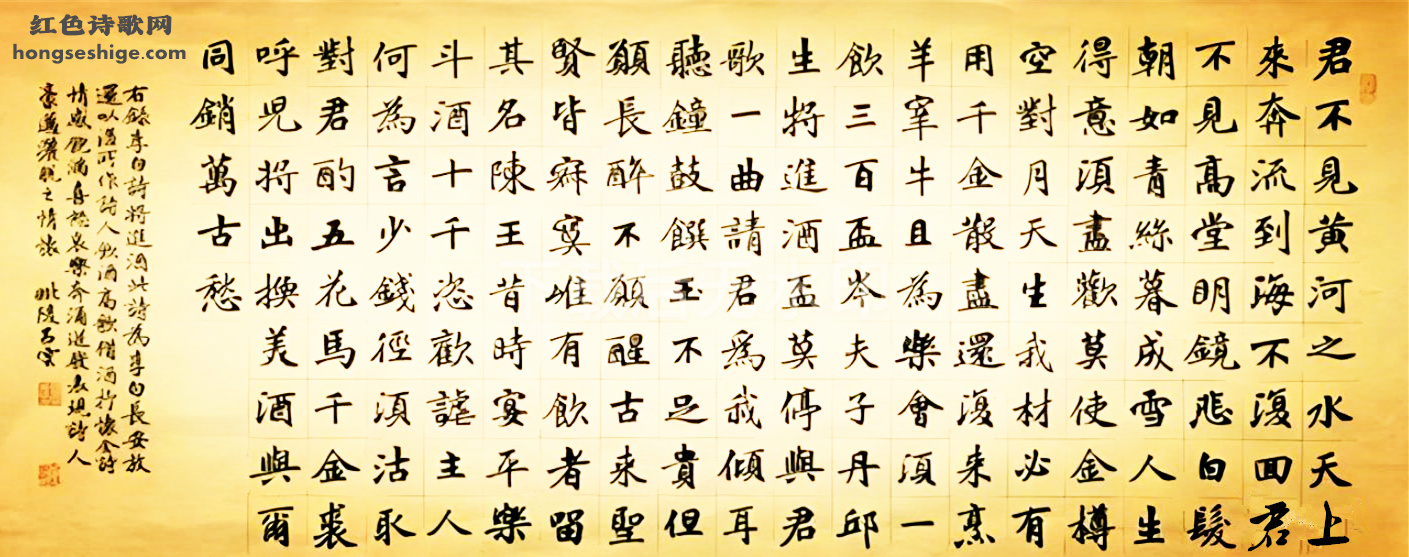 红色诗歌网
hongseshige.com
君不見黃河之水天上
來奔流到海不復回君
不見高堂明鏡悲白髮
朝如青絲暮成雪人生
得意須盡歡莫使金樽
空對月天生我材必有
用千金散盡還復來烹
羊宰牛且為樂會須一
飲三百盃岑夫子丹邱
生將進酒盃莫停與君
歌一曲請君為我傾耳
聽鐘鼓饌玉不足貴但
願長醉不願醒古来聖
賢皆寂寞唯有飲者留
其名陳王昔時宴平樂
斗酒十千恣歡謔主人
何為言少錢徑須沽取
對君酌五花馬千金裘
呼兒將出換美酒與爾
同銷萬古愁
右錄李白詩將進酒此詩為李白長安放
還以後所作詩人飲酒高歌借酒抒懷全詩
情感飽滿喜怒哀樂奔涌迸發表現詩人
豪邁灑脫之情懷